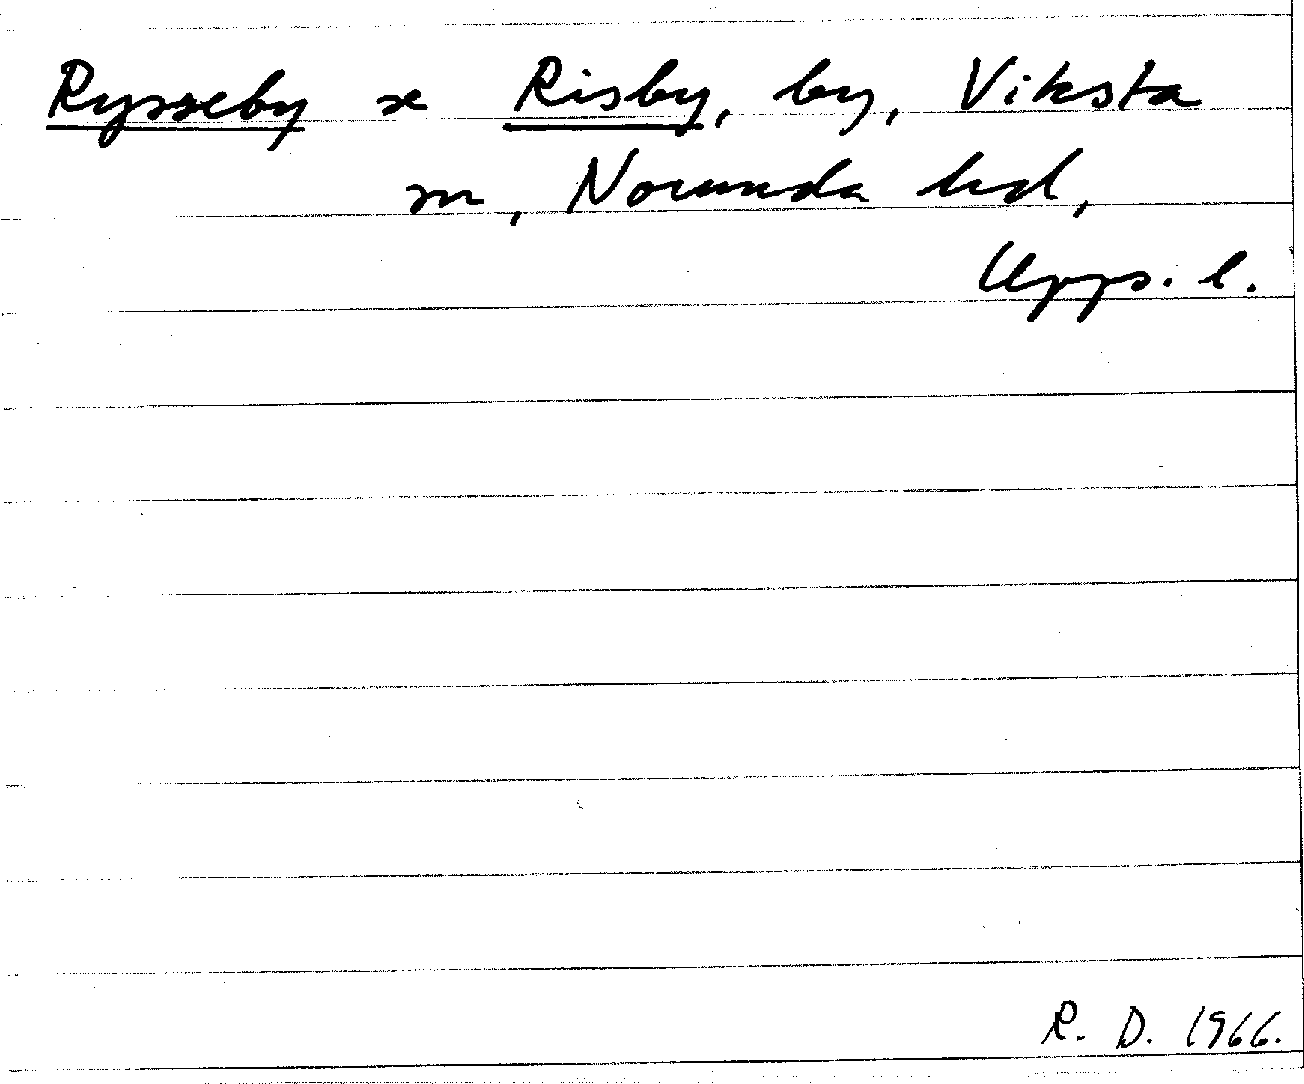 Rysseby se Risby, by, Viksta
sn, Norunda hd,
Upps. l.
R. D. 1966.